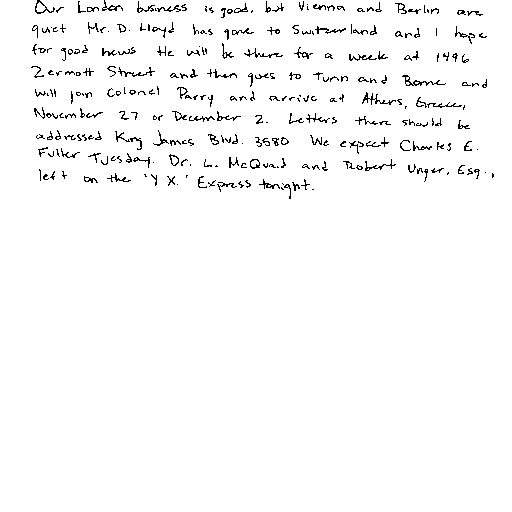 Our London business is good, but Vienna and Berlin are
quiet Mr. D. Lloyd has gone to Switzerland and I hope
for good news He will be there for a week at 1496
Zermott Street and then goes to Turin and Rome and
will join Colonel Parry and arrive at Athens, Greece,
November 27 or December 2. Letters there should be
addressed King James Blvd. 3580 We expect Charles E.
Fuller Tuesday. Dr. L. McQuaid and Robert Unger, Esq.,
left on the 'Y X.' Express tonight.